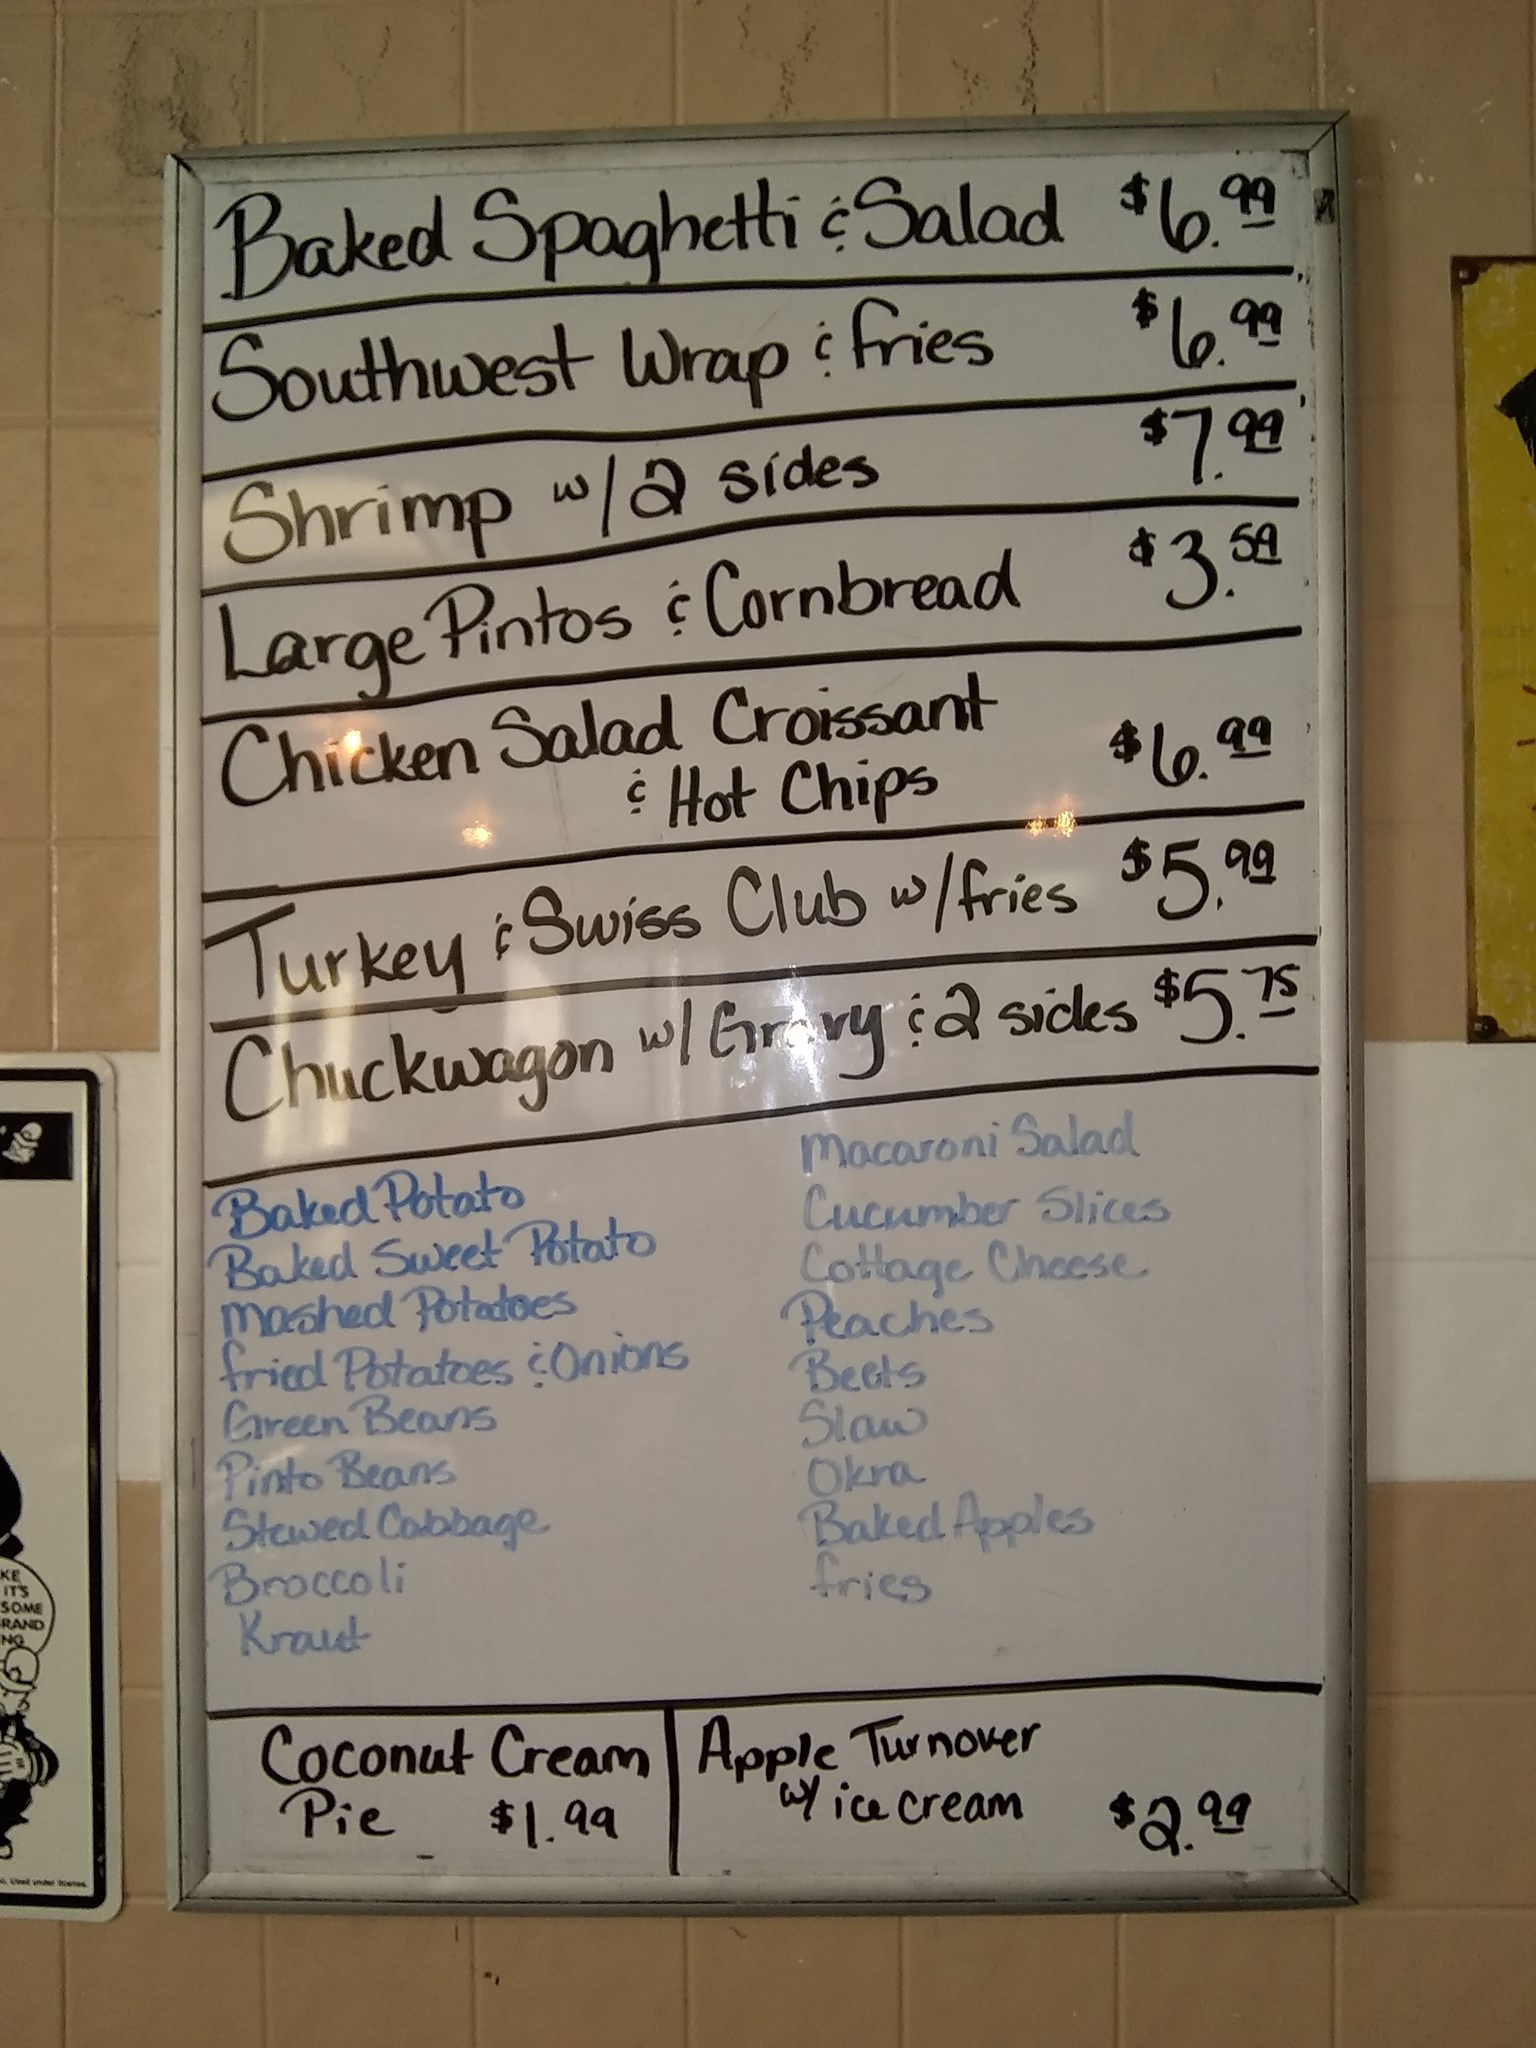 Baked Spaghetti & Salad $6.99
Southwest Wrap & fries $6.99
Shrimp w/2 sides $7.99
Large Pintos & Cornbread $3.59
Chicken Salad Croissant
& Hot Chips $6.99
Turkey & Swiss Club w/fries $5.99
Chuckwagon w/ Gravy & 2 sides $5.75
Baked Potato
Baked Sweet Potato
Mashed Potatoes
fried Potatoes & Onions
Green Beans
Pinto Beans
Stewed Cabbage
Broccoli
Kraut
Macaroni Salad
Cucumber Slices
Cottage Cheese
Peaches
Beets
Slaw
Okra
Baked Apples
fries
Coconut Cream
Pie $1.99
Apple Turnover
w/ ice cream $2.99
KE
IT'S
SOME
RAND
NG
Used under license.